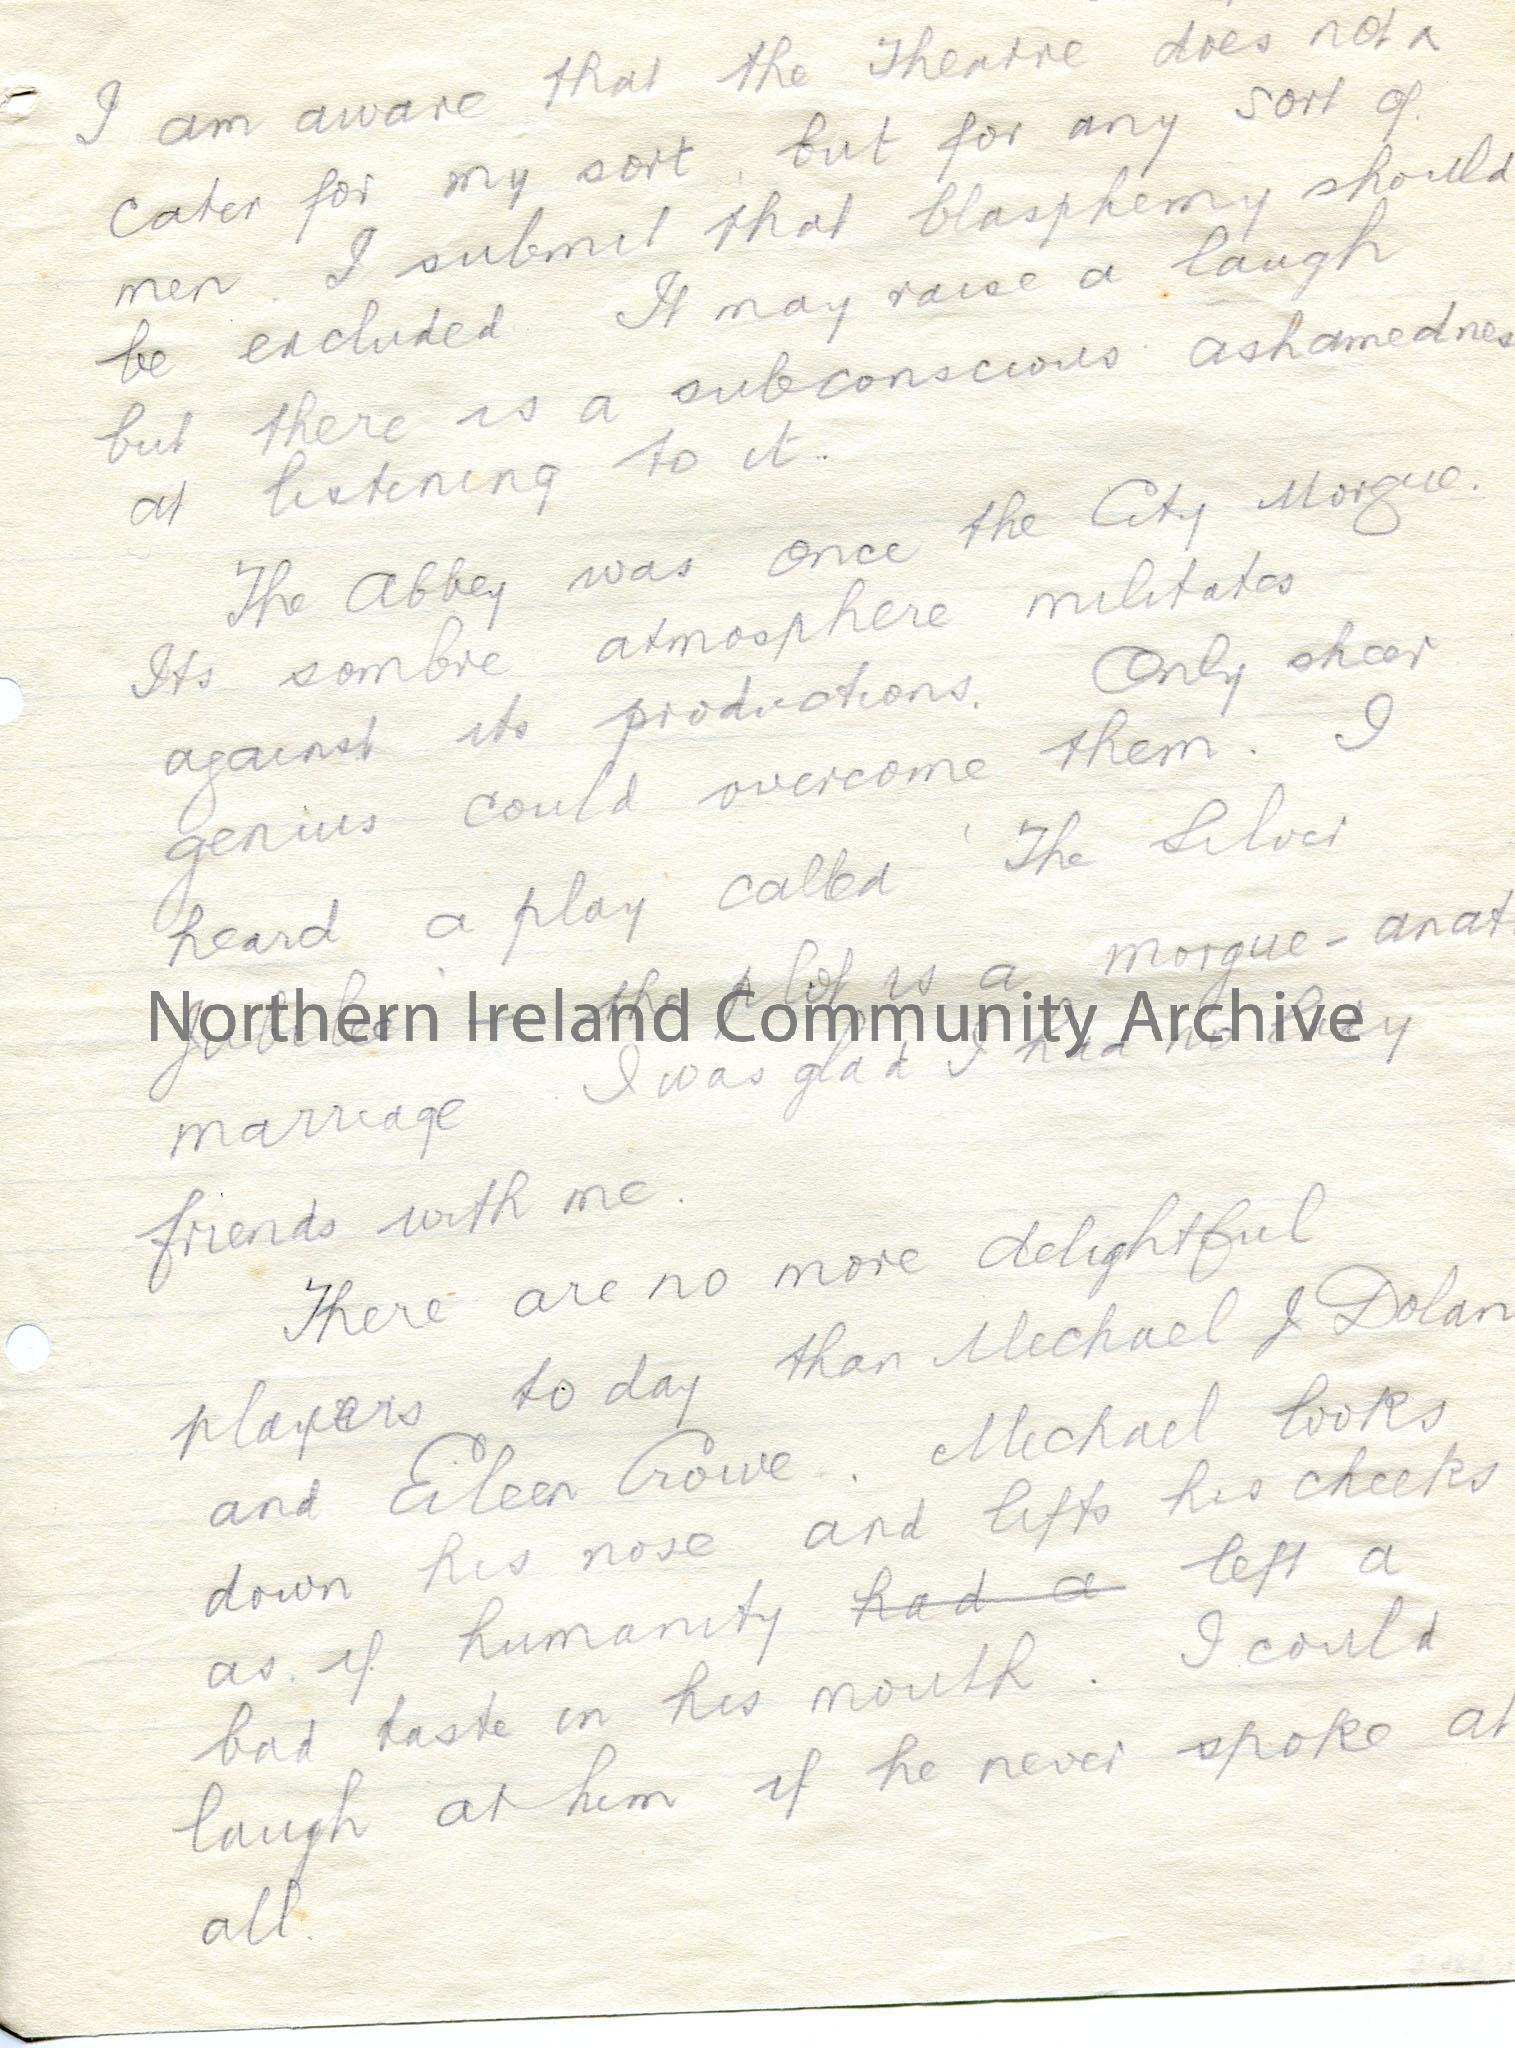 I am aware that the Theatre does not
cater for my sort, but for any sort of
men. I submit that blasphemy should
be excluded. It may raise a laugh
but there is a subconscious ashamednes
at listening to it.
The Abbey was once the City Morgue.
Its sombre atmosphere militates
against its productions. Only sheer
genius could overcome them. I
heard a play called 'The Silver
Jubilee' – the plot is a morgue-anat
Northern Ireland Community Archive
marriage. I was glad I had no
friends with me.
There are no more delightful
players to day than Michael J Dolan
and Eileen Crowe. Michael looks
down his nose and lifts his cheeks
as if humanity had a left a
bad taste in his mouth. I could
laugh at him if he never spoke at
all.